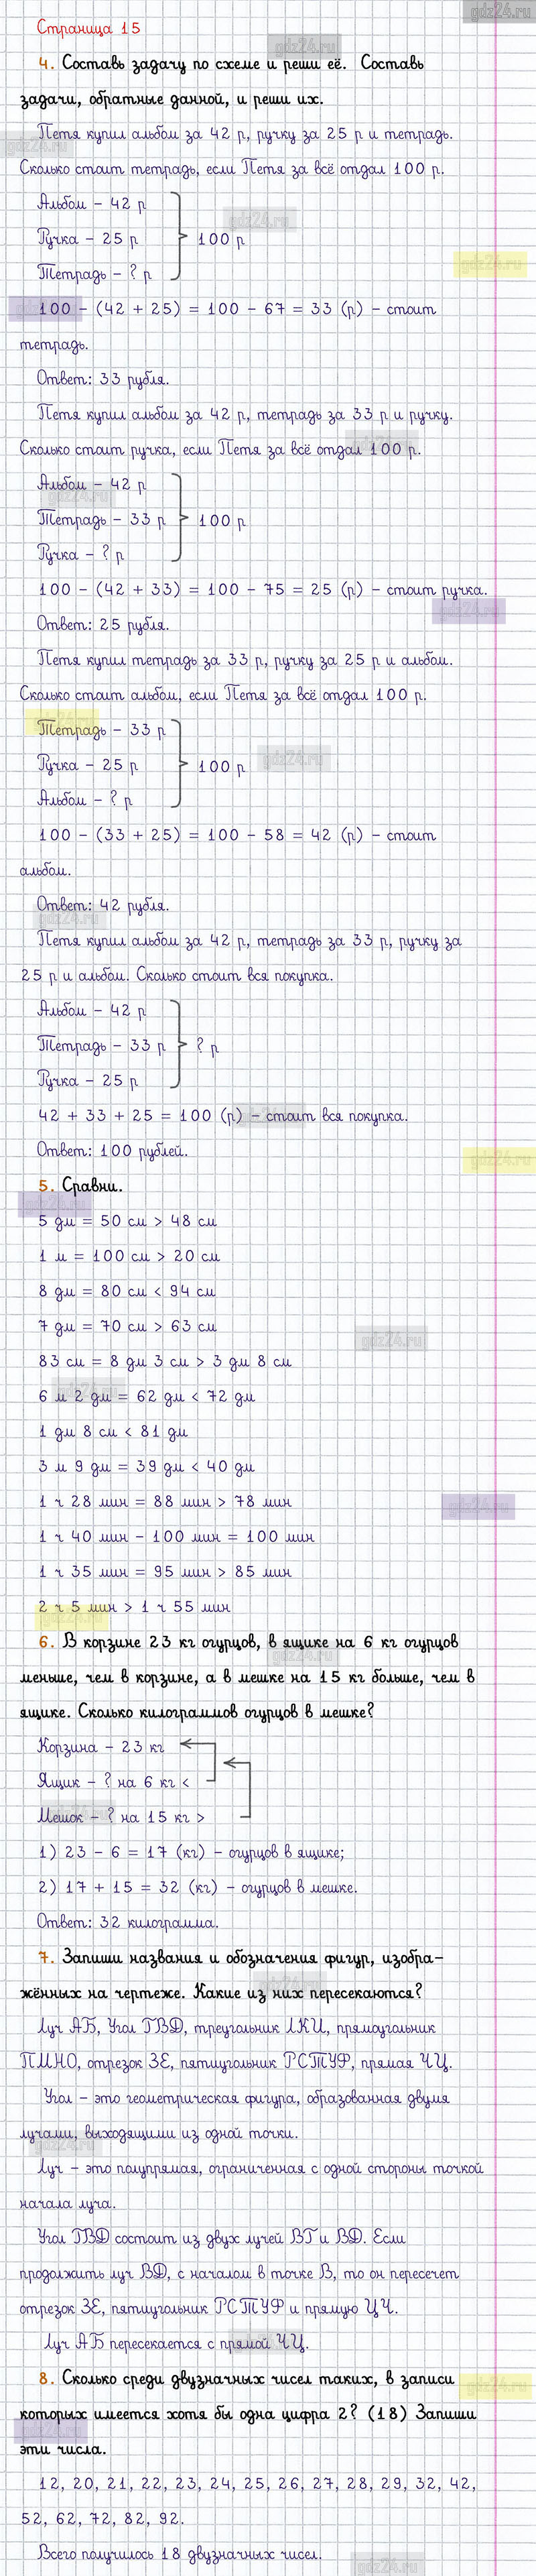 Страница 15
4. Составь задачу по схеме и реши её. Составь
задачи, обратные данной, и реши их.
Петя купил альбом за 42 р, ручку за 25 р и тетрадь.
Сколько стоит тетрадь, если Петя за всё отдал 100 р.
Альбом – 42 р
Ручка – 25 р
100 р
Тетрадь – ? р
100 – (42 + 25) = 100 – 67 = 33 (р) – стоит
тетрадь.
Ответ: 33 рубля.
Петя купил альбом за 42 р, тетрадь за 33 р и ручку.
Сколько стоит ручка, если Петя за всё отдал 100 р.
Альбом – 42 р
Тетрадь – 33 р
100 р
Ручка – ? р
100 – (42 + 33) = 100 – 75 = 25 (р) – стоит ручка.
Ответ: 25 рубля.
Петя купил тетрадь за 33 р, ручку за 25 р и альбом.
Сколько стоит альбом, если Петя за всё отдал 100 р.
Тетрадь – 33 р
Ручка – 25 р
100 р
Альбом – ? р
100 – (33 + 25) = 100 – 58 = 42 (р) – стоит
альбом.
Ответ: 42 рубля.
Петя купил альбом за 42 р, тетрадь за 33 р, ручку за
25 р и альбом. Сколько стоит вся покупка.
Альбом – 42 р
Тетрадь – 33 р
? р
Ручка – 25 р
42 + 33 + 25 = 100 (р) – стоит вся покупка.
Ответ: 100 рублей.
5. Сравни.
5 дм = 50 см > 48 см
1 м = 100 см > 20 см
8 дм = 80 см < 94 см
7 дм = 70 см > 63 см
83 см = 8 дм 3 см > 3 дм 8 см
6 м 2 дм = 62 дм < 72 дм
1 дм 8 см < 81 дм
3 м 9 дм = 39 дм < 40 дм
1 ч 28 мин = 88 мин > 78 мин
1 ч 40 мин – 100 мин = 100 мин
1 ч 35 мин = 95 мин > 85 мин
2 ч 5 мин > 1 ч 55 мин
6. В корзине 23 кг огурцов, в ящике на 6 кг огурцов
меньше, чем в корзине, а в мешке на 15 кг больше, чем в
ящике. Сколько килограммов огурцов в мешке?
Корзина – 23 кг
Ящик – ? на 6 кг <
Мешок – ? на 15 кг >
1) 23 – 6 = 17 (кг) – огурцов в ящике;
2) 17 + 15 = 32 (кг) – огурцов в мешке.
Ответ: 32 килограмма.
7. Запиши названия и обозначения фигур, изобра-
жённых на чертеже. Какие из них пересекаются?
Луч АБ, Угол ГВД, треугольник ЛКИ, прямоугольник
ПМНО, отрезок ЗЕ, пятиугольник РСТУФ, прямая ЧЦ.
Угол – это геометрическая фигура, образованная двумя
лучами, выходящими из одной точки.
Луч – это полупрямая, ограниченная с одной стороны точкой
начала луча.
Угол ГВД состоит из двух лучей ВГ и ВД. Если
продолжить луч ВД, с началом в точке В, то он пересечет
отрезок ЗЕ, пятиугольник РСТУФ и прямую ЦЧ.
Луч АБ пересекается с прямой ЧЦ.
8. Сколько среди двузначных чисел таких, в записи
которых имеется хотя бы одна цифра 2? (18) Запиши
эти числа.
12, 20, 21, 22, 23, 24, 25, 26, 27, 28, 29, 32, 42,
52, 62, 72, 82, 92.
Всего получилось 18 двузначных чисел.